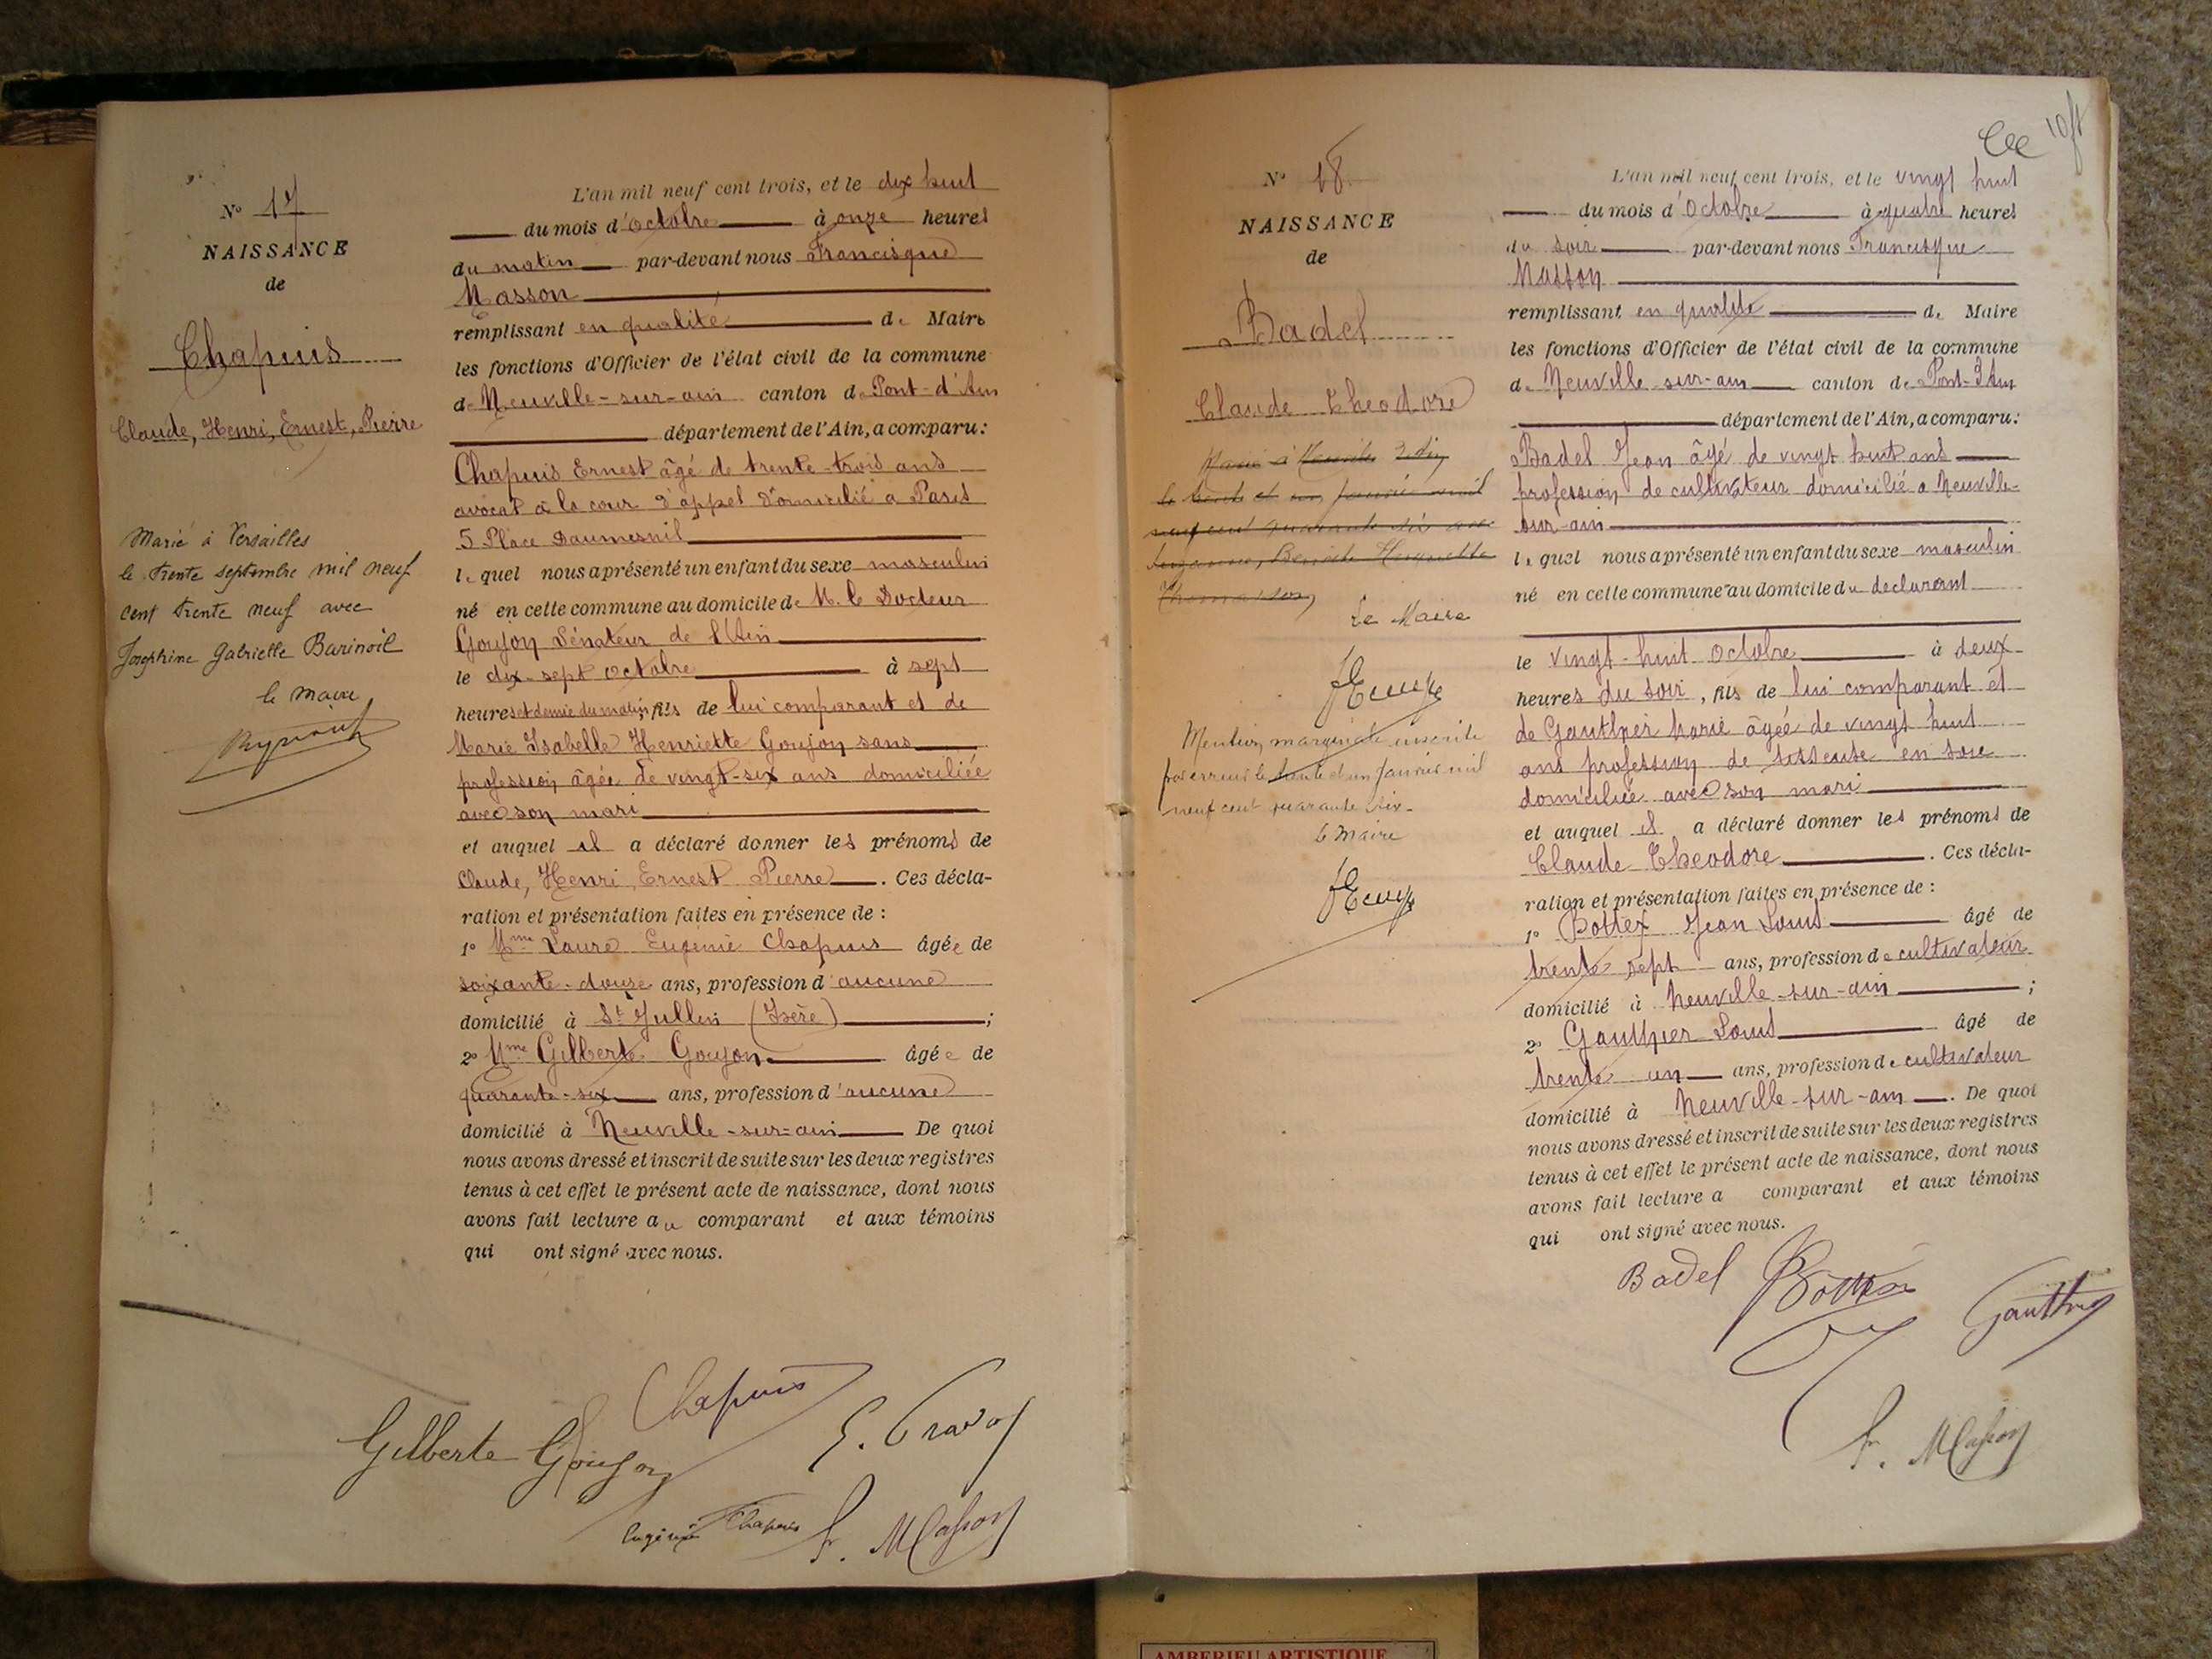 N° 17
NAISSANCE
de
Chapuis
Claude, Henri, Ernest, Pierre
Marié à Versailles
le trente septembre mil neuf
cent trente neuf avec
Joséphine Gabrielle
le maire
L'an mil neuf cent trois, et le dix huit
du mois d'octobre à onze heures
du matin par-devant nous Francisque
Masson
remplissant en qualité de Maire
les fonctions d'Officier de l'état civil de la commune
de Neuville-sur-ain canton de Pont-d'Ain
département de l'Ain, a comparu:
Chapuis Ernest âgé de trente-trois ans
avocat à la cour d'appel domicilié a Paris
5 Place Daumesnil
lequel nous a présenté un enfant du sexe masculin
né en cette commune au domicile de M. le Docteur
Goujon Sénateur de l'Ain
le dix-sept octobre à sept
heures et demie du matin, fils de lui comparant et de
Marie Isabelle Henriette Goujon sans
profession âgée de vingt-six ans domiciliée
avec son mari
et auquel il a déclaré donner les prénoms de
Claude, Henri, Ernest Pierre. Ces décla-
ration et présentation faites en présence de :
1° Mme Laure Eugénie Chapuis âgée de
soixante-douze ans, profession d'aucune
domicilié à St Jullin (Isère);
2° Mme Gilberte Goujon âgée de
quarante-six ans, profession d'aucune
domicilié à Neuville-sur-ain De quoi
nous avons dressé et inscrit de suite sur les deux registres
tenus à cet effet le présent acte de naissance, dont nous
avons fait lecture au comparant et aux témoins
qui ont signé avec nous.
Chapuis
Gilberte Goujon
Eugénie Chapuis
Fr. Masson
N° 18
NAISSANCE
de
Badel
Claude Theodore
Marié à Neuville
le trente et un janvier mil
neuf cent quarante six avec
Suzanne, Benoite Henriette
Thomasson
Le Maire
Mention marginale inscrite
par erreur le trente et un janvier mil
neuf cent quarante six.
Le Maire
L'an mil neuf cent trois, et le vingt huit
du mois d'octobre à quatre heures
du soir par-devant nous Francisque
Masson
remplissant en qualité de Maire
les fonctions d'Officier de l'état civil de la commune
de Neuville-sur-ain canton de Pont-d'Ain
département de l'Ain, a comparu:
Badel Jean âgé de vingt huit ans
profession de cultivateur domicilié a Neuville-
sur-ain
lequel nous a présenté un enfant du sexe masculin
né en cette commune au domicile du declarant
le vingt-huit octobre à deux
heures du soir, fils de lui comparant et
de Gauthier Marie âgée de vingt huit
ans profession de tisseuse en soie
domiciliée avec son mari
et auquel il a déclaré donner les prénoms de
Claude Theodore. Ces décla-
ration et présentation faites en présence de :
1° Bottex Jean Louis âgé de
trente sept ans, profession de cultivateur
domicilié à Neuville-sur-ain;
2° Gauthier Louis âgé de
trente un ans, profession de cultivateur
domicilié à Neuville-sur-ain. De quoi
nous avons dressé et inscrit de suite sur les deux registres
tenus à cet effet le présent acte de naissance, dont nous
avons fait lecture a comparant et aux témoins
qui ont signé avec nous.
Badel Bottex
Gauthier
Fr. Masson
AMBERIEU ARTISTIQUE